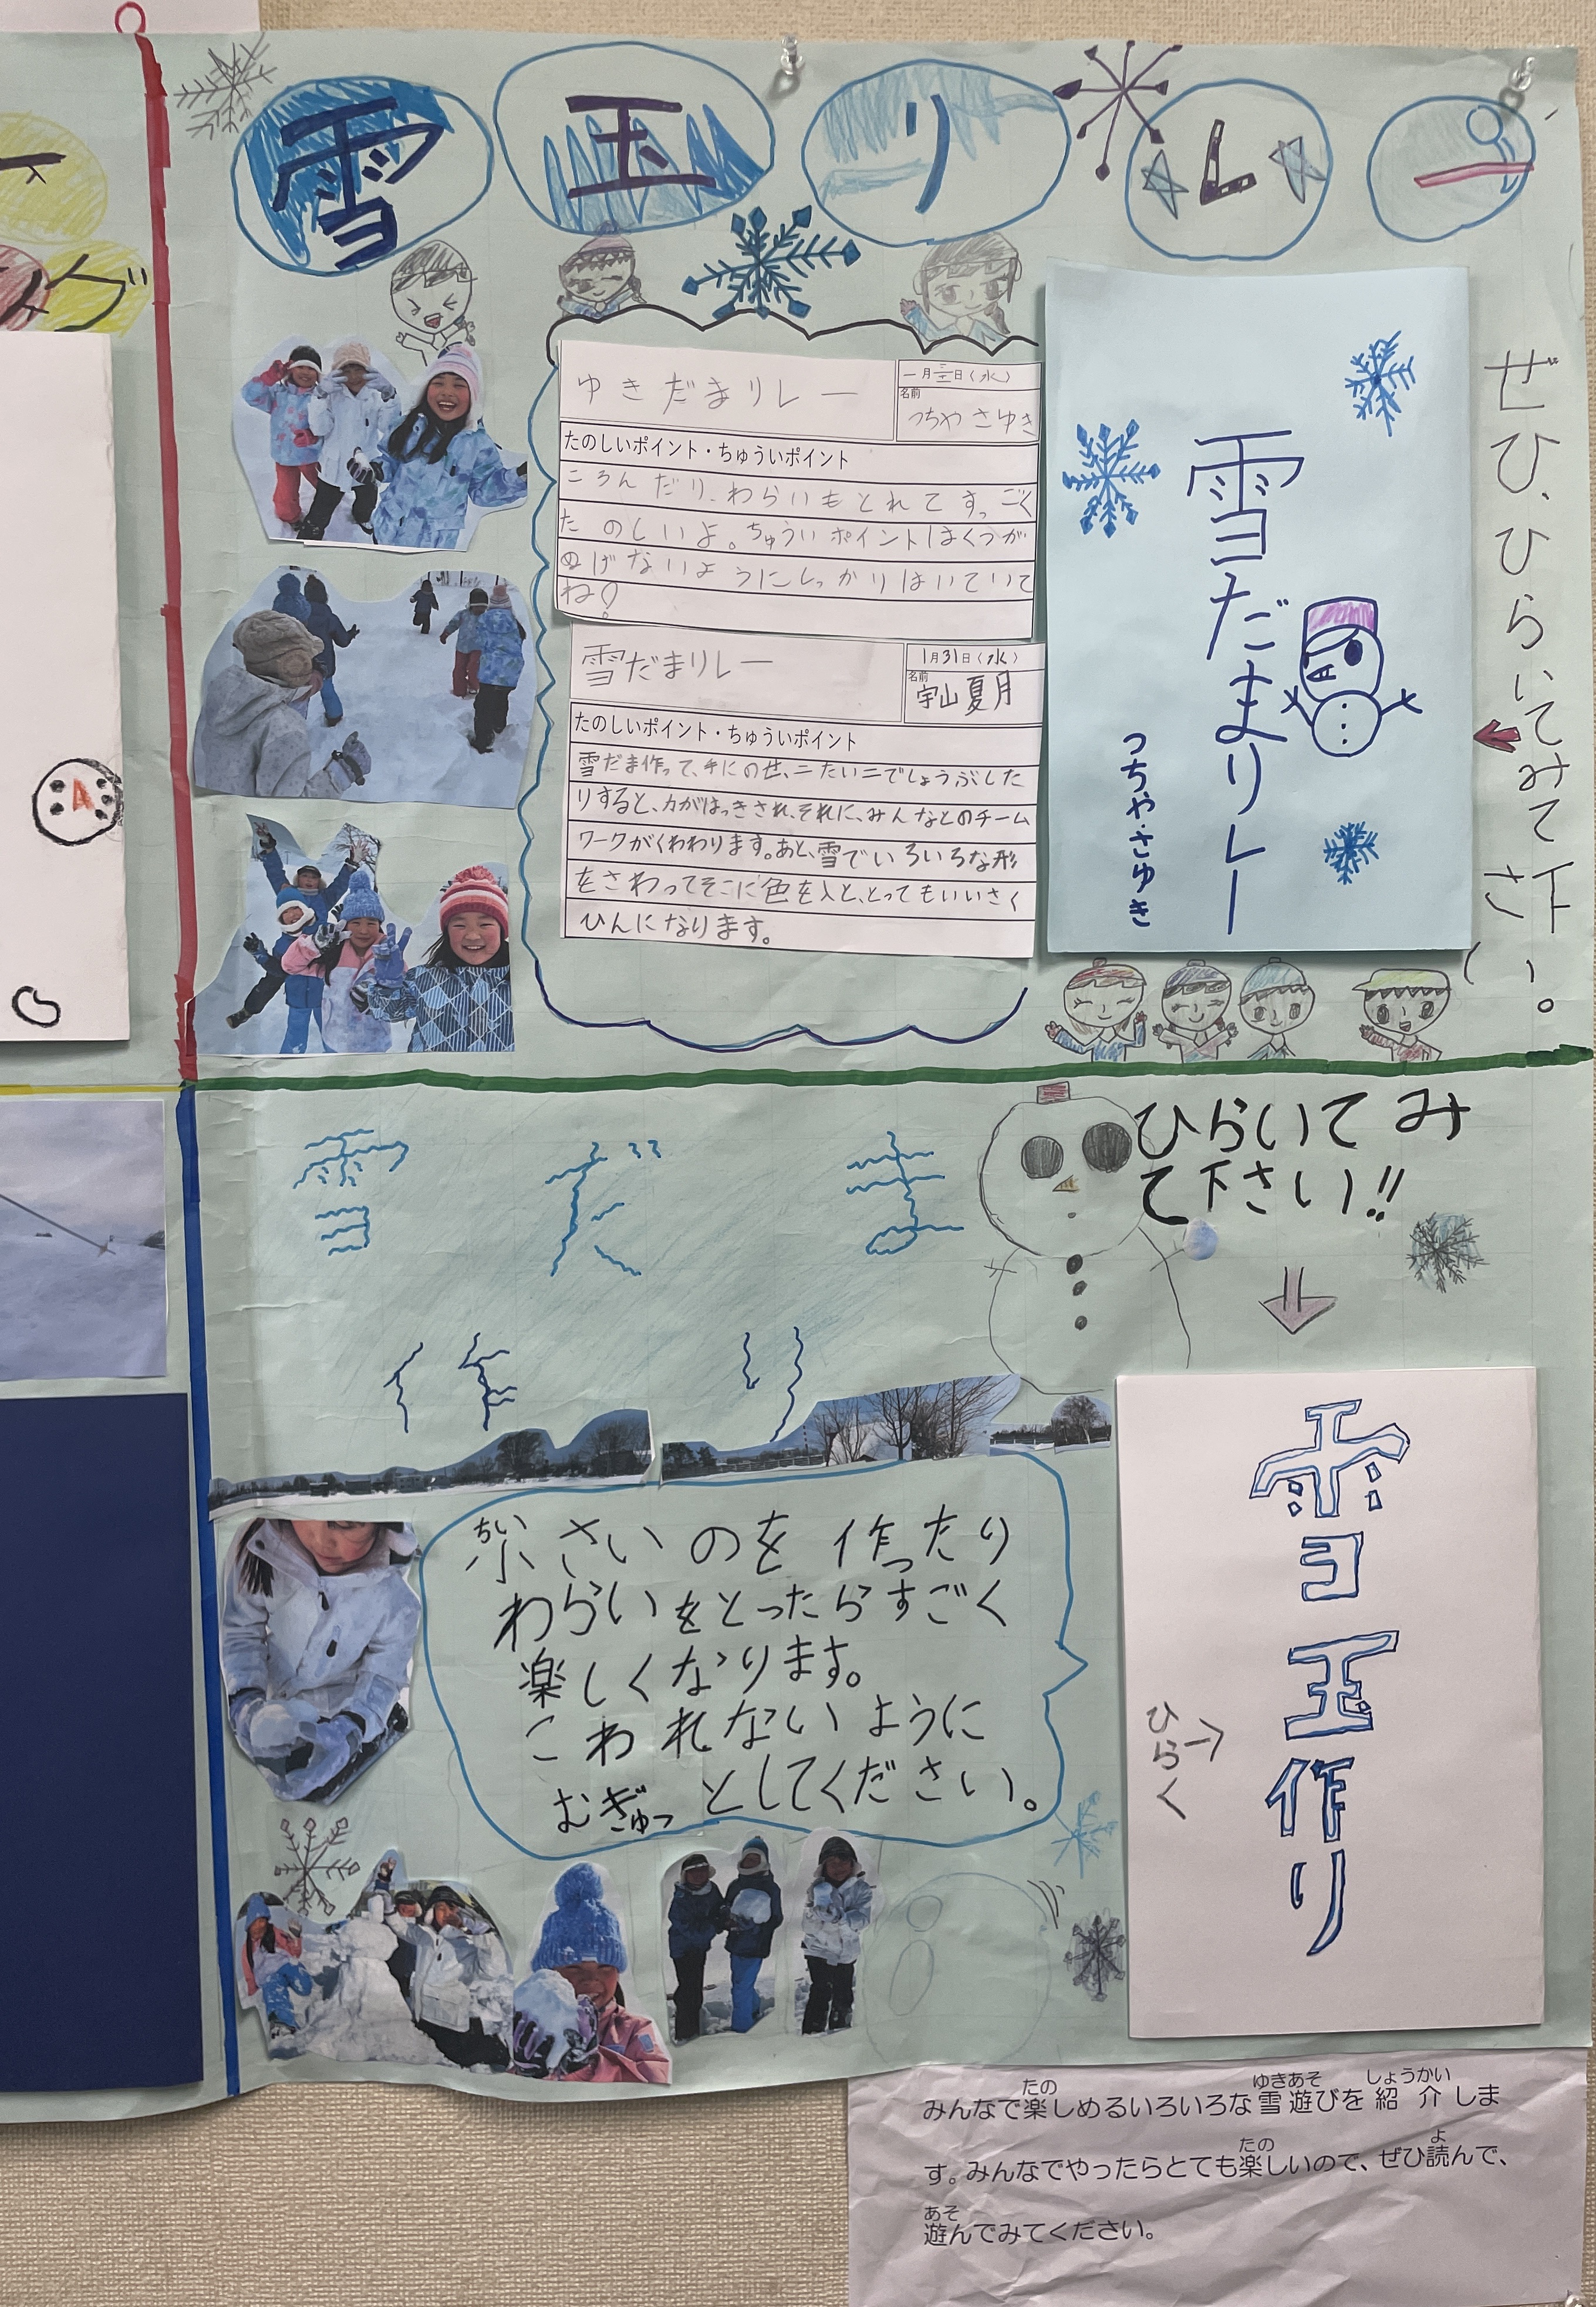 雪玉リレー
ゆきだまリレー
一月三十一日(水)
名前
つちや さゆき
たのしいポイント・ちゅういポイント
ころんだり、わらいもとれてすっごく
たのしいよ。ちゅういポイントはくつが
ぬげないようにしっかりはいていて
ね!
雪だまリレー
1月31日(水)
名前
宇山夏月
たのしいポイント・ちゅういポイント
雪だま作って、手にのせ、二たい二でしょうぶした
りすると、力がはっきされ、それに、みんなとのチーム
ワークがくわわります。あと、雪でいろいろな形
をさわってそこに色を入と、とってもいいさく
ひんになります。
雪だまリレー
つちや・さゆき
ぜひ、ひらいてみて下さい。
雪だま
作り
ひらいてみ
て下さい!!
小さいのを作ったり
ちい
わらいをとったらすごく
楽しくなります。
こわれないように
むぎゅっとしてください。
雪玉作り
ひらく
みんなで楽しめるいろいろな雪遊びを紹介しま
たの ゆきあそ しょうかい
す。みんなでやったらとても楽しいので、ぜひ読んで、
たの よ
遊んでみてください。
あそ